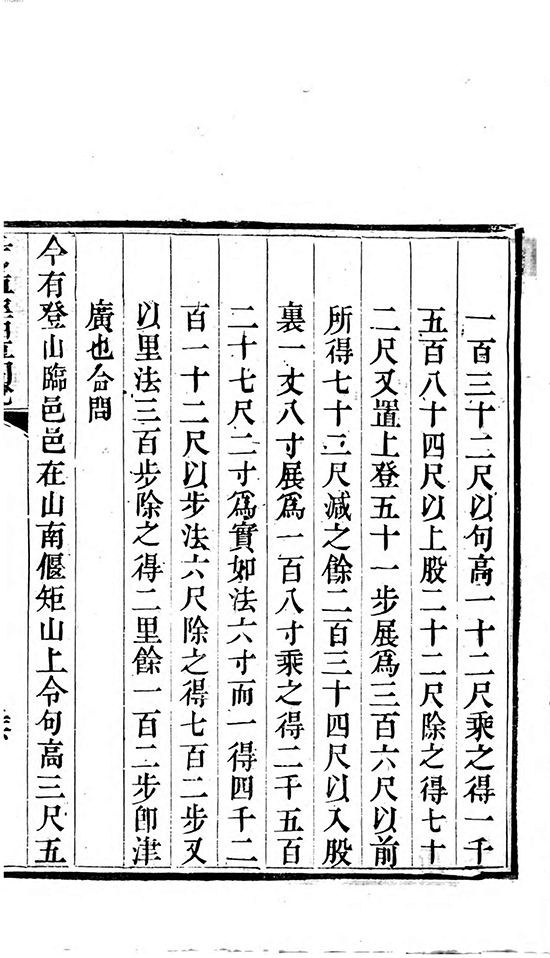 一百三十二尺以句高一十二尺乘之得一千
五百八十四尺以上股二十二尺除之得七十
二尺又置上登五十一步展爲三百六尺以前
所得七十二尺減之餘二百三十四尺以入股
裏一丈八寸展爲一百八寸乘之得二千五百
二十七尺二寸爲實如法六寸而一得四千二
百一十二尺以步法六尺除之得七百二步又
以里法三百步除之得二里餘一百二步卽津
廣也合問
今有登山臨邑邑在山南偃矩山上令句高三尺五